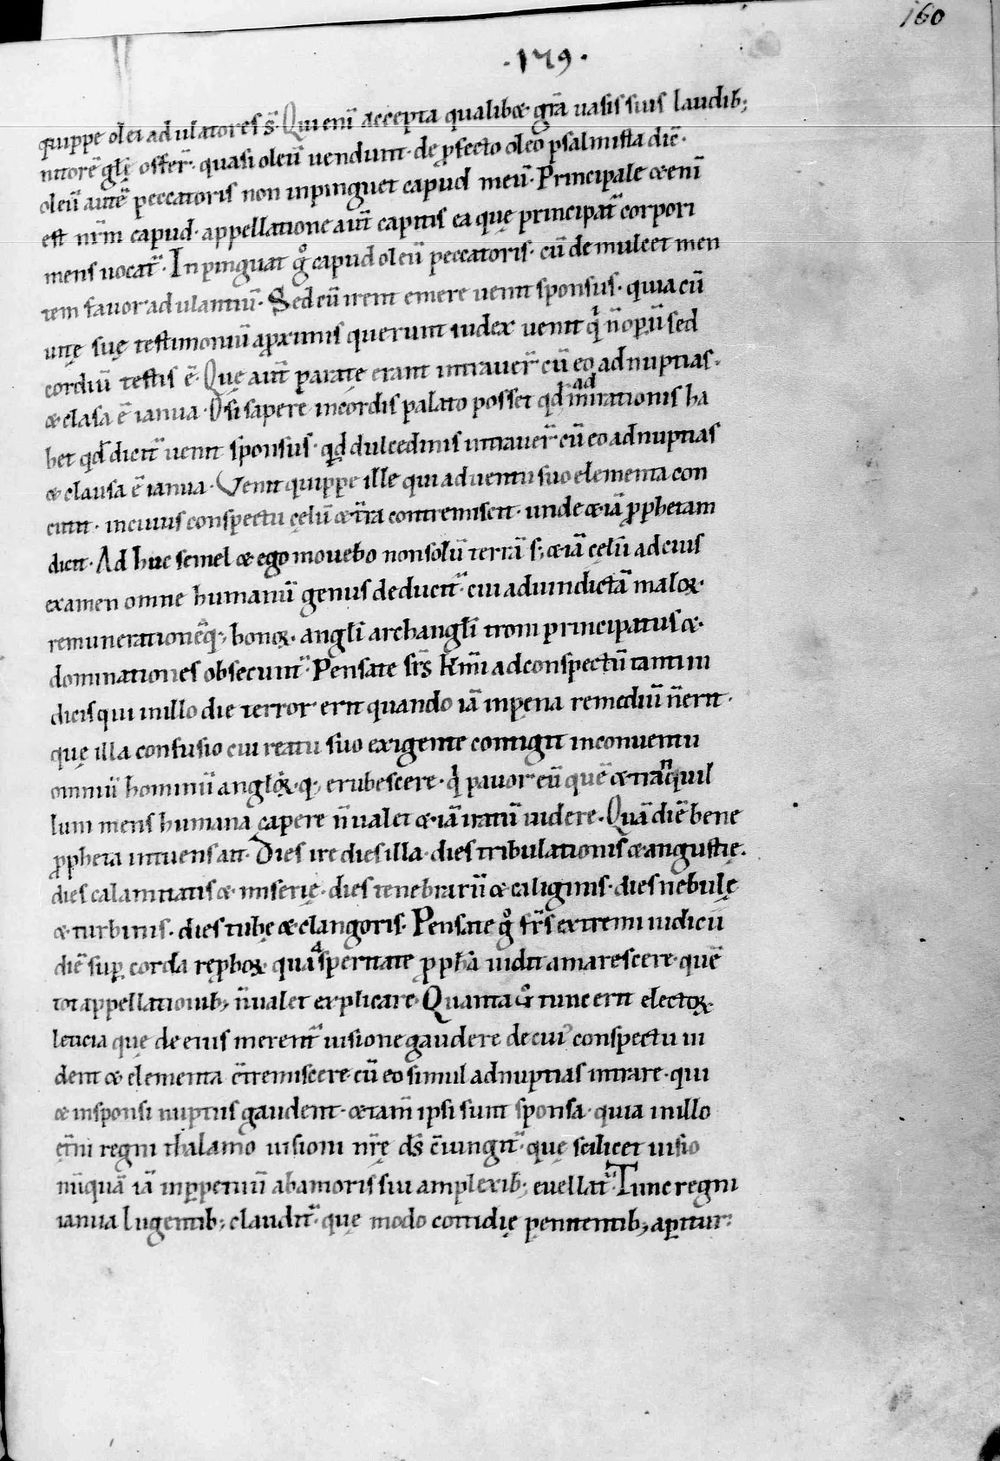 160
·179·
quippe olei adulatores s̄. Qui eni accepta qualibæ gr̄a uasis suis laudib;
nitorē gl̄ę offer̄. quasi oleū uendunt. de p̄fecto oleo psalmista diē.
oleū autē peccatoris non inpinguet capud meū. Principale æ eni
est nr̄m capud. appellatione aut̄ capitis ea quę principat̄ corpori
mens uocat̄. Inpinguat g̊ capud oleū peccatoris. cū demulcet men
tem fauor adulantiū. Sed eū irent emere uenit sponsus. quia cū
uitę suę testimoniū a p̄ximis querunt iudex uenit qⁱ n̄ op̄ū sed
cordiū testis ē. Quę aut̄ paratę erant intrauer̄ cū eo ad nuptias.
æ clasa ē ianua. O si sapere in cordis palato posset qd̄ admirationis ha
bet qd̄ dicit̄ uenit sponsus. qd̄ dulcedinis intrauer̄ cū eo ad nuptias
æ clausa ē ianua. Venit quippe ille qui aduentu suo elementa con
cutit. in cuius conspectu cęlū æ t̄ra contremiscit. unde æ iā p̄phetam
dicit. Ad huc semel æ ego mouebo non solū terrā s; æ iā cęlū ad cuis
examen omne humanū genus deducit̄. cui ad uindictā maloꝝ.
remunerationēq; bonoꝝ. angli archangli troni principatus æ.
dominationes obsecunt̄. Pensate fr̄s km̄i ad conspectū tanti iu
dicis qui in illo die terror erit quando iā in pena remediū n̄ erit.
quę illa confusio cui reatu suo exigente contigit in conuentu
omniū hominū angloꝝ.q; erubescere. qⁱ pauor eū quē æ tranquil
lum mens humana capere n̄ ualet æ. iā iratū uidere. Quā diē bene
p̄pheta intuens ait. Dies ire dies illa. dies tribulationis æ angustię.
dies calamitatis æ. miserię. dies tenebrarū æ caliginis. dies nebulę
æ turbinis. dies tubę æ clangoris. Pensate g̊ fr̄s extremi iudicii
diē sup̄ corda rep̄boꝝ quā asperitate p̄ph̄a uidit amarescere. quē
tot appellationib; n̄ ualet explicare. Quanta g̊ tunc erit electoꝝ
leticia que de eius merent̄ uisione gaudere de cui᾽ conspectu ui
dent æ elementa c̄tremiscere. cū eo simul ad nuptias intrare. qui
æ in sponsi nuptiis gaudent. æ tam̄ ipsi sunt sponsa. quia in illo
et̄ni regni thalamo uisioni nr̄ę ds̄ c̄iungit̄. quę scilicet uisio
nūquā iā in p̄petuū ab amoris sui amplexib; euellat̄. Tunc regni
ianua lugentib; claudit̄. quę modo cotidię penitentib; ap̄itur: